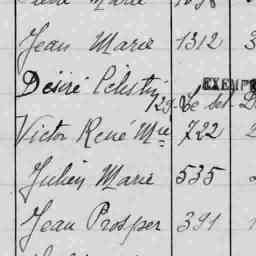 Jean Marie 1312 3
Désiré Célestin EXEMP
Victor René Mie 722 2
Julien Marie 535
Jean Prosper 391 1